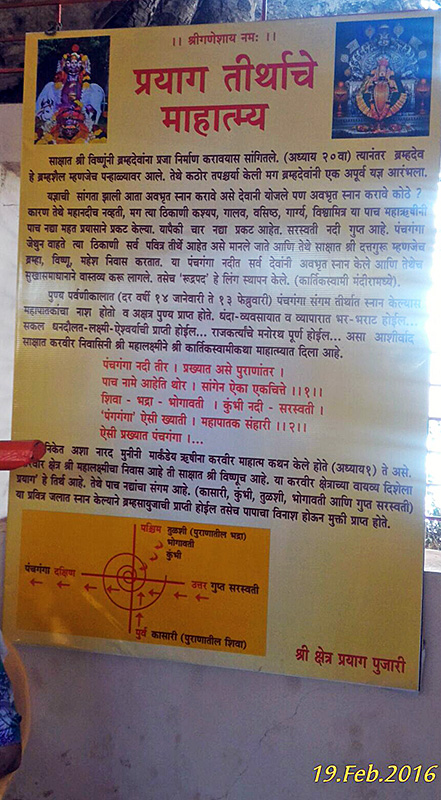 ।। श्रीगणेशाय नमः ।।
प्रयाग तीर्थाचे
माहात्म्य
साक्षात श्री विष्णूंनी ब्रम्हदेवांना प्रजा निर्माण करावयास सांगितले. (अध्याय २०वा) त्यानंतर ब्रम्हदेव
हे ब्रम्हशैल म्हणजेच पन्हाळ्यावर आले. तेथे कठोर तपश्चर्या केली मग ब्रम्हदेवांनी एक अपूर्व यज्ञ आरंभला.
यज्ञाची सांगता झाली आता अवभृत स्नान करावे असे देवानी योजले पण अवभृत स्नान करावे कोठे ?
कारण तेथे महानदीच नव्हती, मग त्या ठिकाणी कश्यप, गालव, वसिष्ठ, गार्ग्य, विश्वामित्र या पाच महाऋषींनी
पाच नद्या महत प्रयासाने प्रकट केल्या. यापैकी चार नद्या प्रकट आहेत. सरस्वती नदी गुप्त आहे. पंचगंगा
जेथुन वाहते त्या ठिकाणी सर्व पवित्र तीर्थे आहेत असे मानले जाते आणि तेथे साक्षात श्री दत्तगुरू म्हणजेच
ब्रम्हा, विष्णू, महेश निवास करतात. या पंचगंगा नदीत सर्व देवांनी अवभृत स्नान केले आणि तेथेच
सुखासमाधानाने वास्तव्य करू लागले. तसेच 'रूद्रपद' हे लिंग स्थापन केले. (कार्तिकस्वामी मंदीरामध्ये).
पुण्य पर्वणीकालात (दर वर्षी १४ जानेवारी ते १३ फेब्रुवारी) पंचगंगा संगम तीर्थात स्नान केल्यास
महापातकांचा नाश होतो व अक्षत्र पुण्य प्राप्त होते. धंदा-व्यवसायात व व्यापारात भर-भराट होईल...
सकल धनदौलत-लक्ष्मी-ऐश्वर्याची प्राप्ती होईल... राजकर्त्यांचे मनोरथ पूर्ण होईल... असा आशीर्वाद
साक्षात करवीर निवासिनी श्री महालक्ष्मीने श्री कार्तिकस्वामीकथा माहात्म्यात दिला आहे.
पंचगंगा नदी तीर । प्रख्यात असे पुराणांतर ।
पाच नामे आहेति थोर । सांगेन ऐका एकचित्ते ।।१।।
शिवा - भद्रा - भोगावती । कुंभी नदी - सरस्वती ।
'पंगगंगा' ऐसी ख्याती । महापातक संहारी ।।२।।
ऐसी प्रख्यात पंचगंगा ।...
निकेत अशा नारद मुनीनी मार्कंडेय ऋषीना करवीर माहात्म कथन केले होते (अध्याय१) ते असे.
क्षेत्र श्री महालक्ष्मीचा निवास आहे ती साक्षात श्री विष्णूच आहे. या करवीर क्षेत्राच्या वायव्य दिशेला
प्रयाग' हे तिर्थ आहे. तेथे पाच नद्यांचा संगम आहे. (कासारी, कुंभी, तुळशी, भोगावती आणि गुप्त सरस्वती)
या प्रवित्र जलात स्नान केल्याने ब्रम्हसायुजाची प्राप्ती होईल तसेच पापाचा विनाश होऊन मुक्ती प्राप्त होते.
पश्चिम तुळशी (पुराणातील भद्रा)
भोगावती
कुंभी
पंचगंगा दक्षिण
उत्तर गुप्त सरस्वती
पुर्व कासारी (पुराणातील शिवा)
श्री क्षेत्र प्रयाग पुजारी
19.Feb.2016